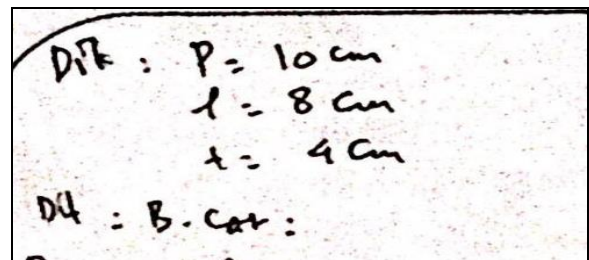 Dik : P = 10 cm
l = 8 cm
t = 4 cm
Dit : B. Cat :